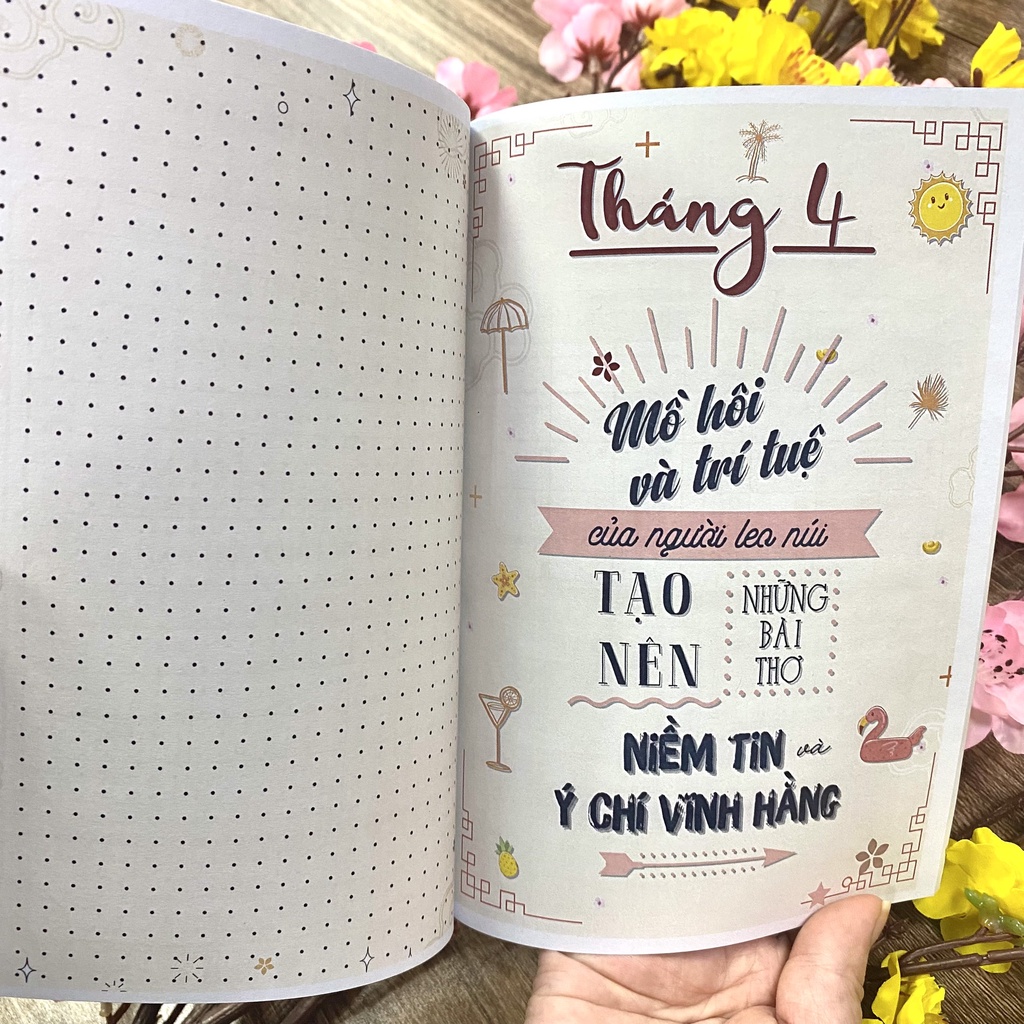 Tháng 4
Mồ hôi
và trí tuệ
của người leo núi
TẠO
NÊN
NHỮNG
BÀI
THƠ
NiỀM TiN và
Ý CHÍ VĨNH HẰNG